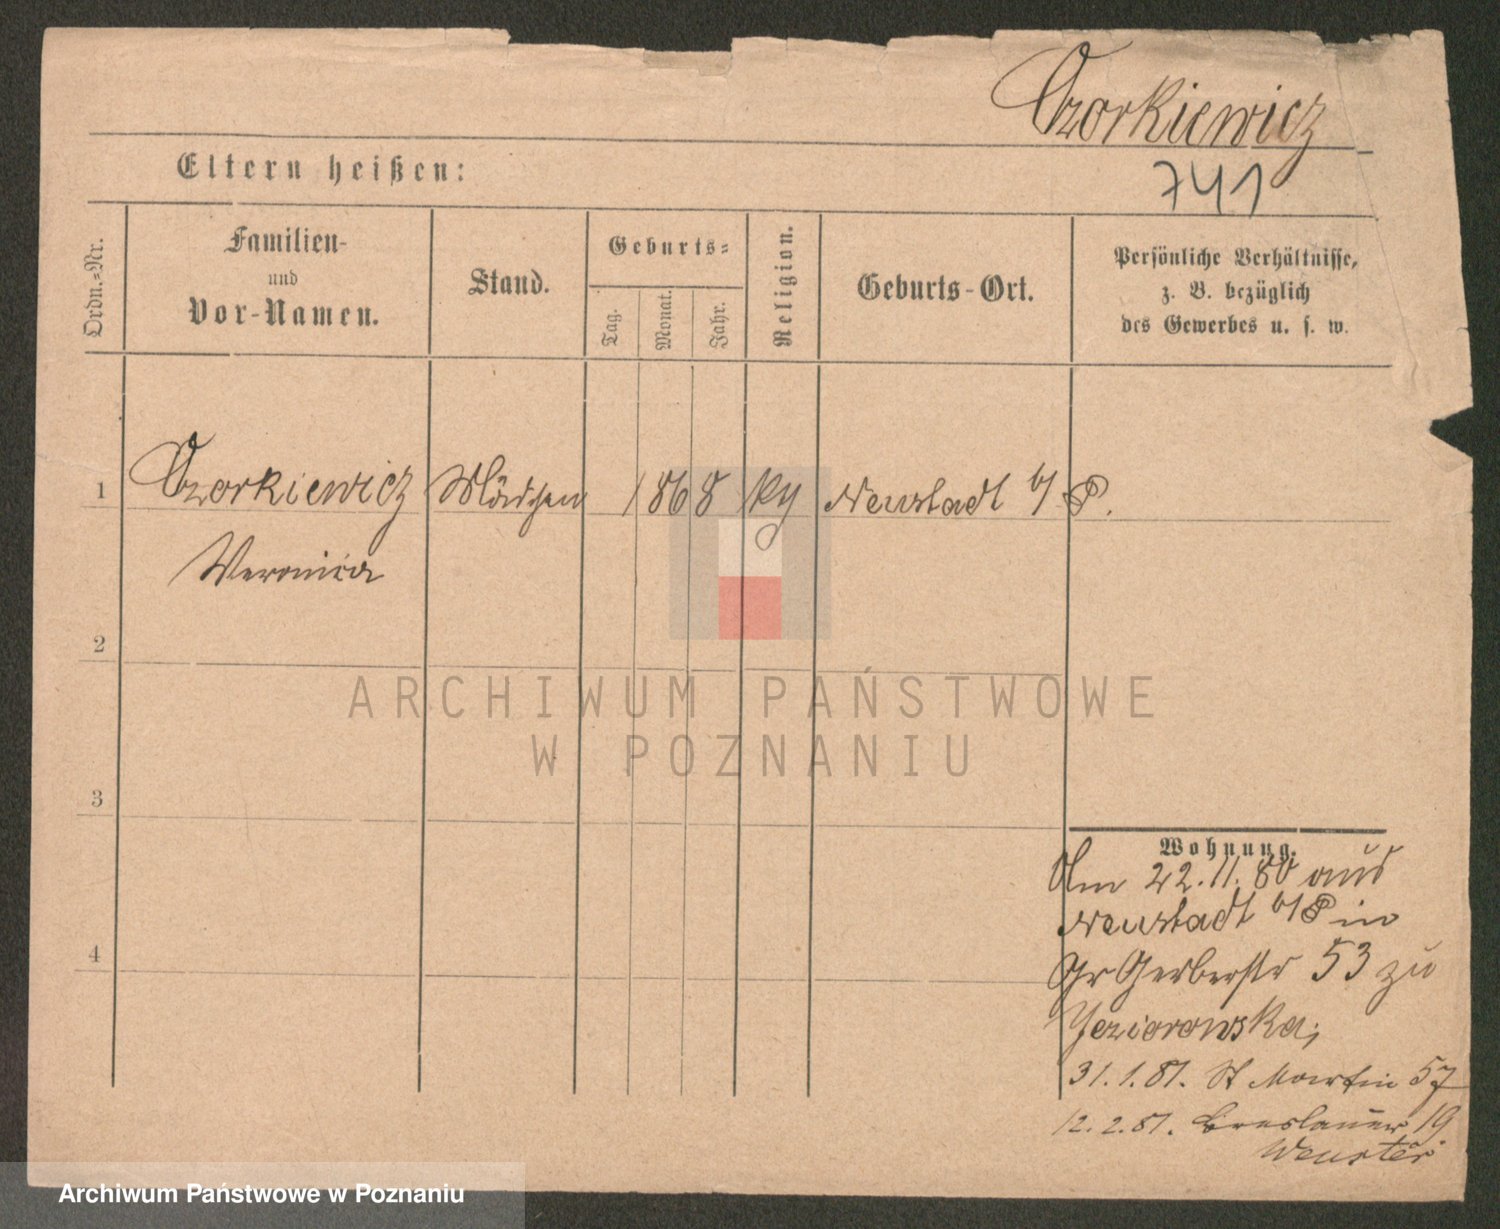 Czorkiewicz
741
Eltern heißen:
Ordn.-Nr.
Familien-
und
Vor-Namen.
Stand.
Geburts-
Tag.
Monat.
Jahr.
Religion.
Geburts-Ort.
Persönliche Verhältnisse,
z. B. bezüglich
des Gewerbes u. s. w.
1 Czorkiewicz Mädchen 1868 Neustadt b/P.
Veronica
2
3
4
Wohnung.
Am 22.11.80 aus
Neustadt b/P in
Gr Gerberstr 53 zu
Jeziorowska;
31.1.81. St Martin 57
12.2.81. Breslauer 19
ARCHIWUM PAŃSTWOWE
W POZNANIU
Archiwum Państwowe w Poznaniu